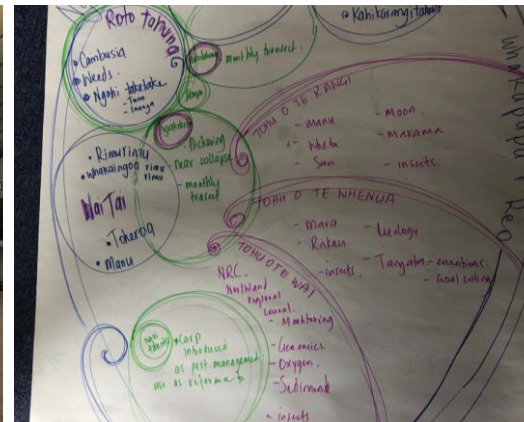 Roto tahuna
• Cambusia
• Weeds.
• Ngohi taketake
- Tuna
- Inanga
monthly transect.
Kahikarangitahu
• Rimurimu
• whakaingoa rimu
rimu
Wai Tai
• Toheroa
• Manu
flickering
near collapse
- monthly
trasect
TOHU O TE RANGI
- Manu
- Whetu
- Sun
- Moon.
- Marama
- insects.
TOHU O TE WHENUA
- Mara
- Rakau
- insects.
- Geology
- Tangata - emotions
- Goal setting
TOHU O TE WAI
NRC.
Northland
Regional
Council.
- Monitoring
- Genetics.
- Oxygen.
- Sediment
- insects
* Carp
introduced
as pest management
use as reference to